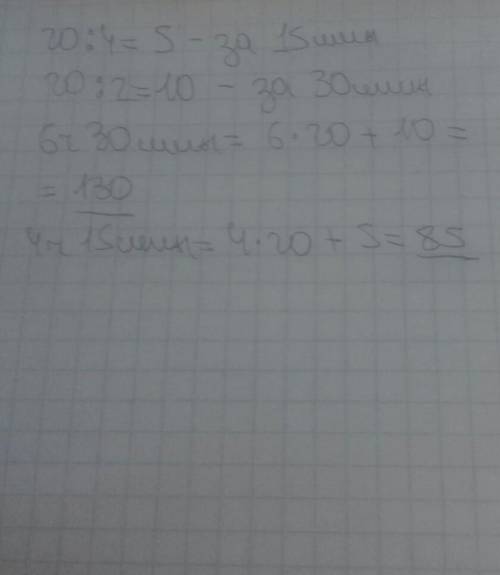 20:4= 5 - за 15мин
20:2=10 - за 30мин
6ч 30мин= 6·20+10=
= 130
4ч 15мин= 4·20+5=85